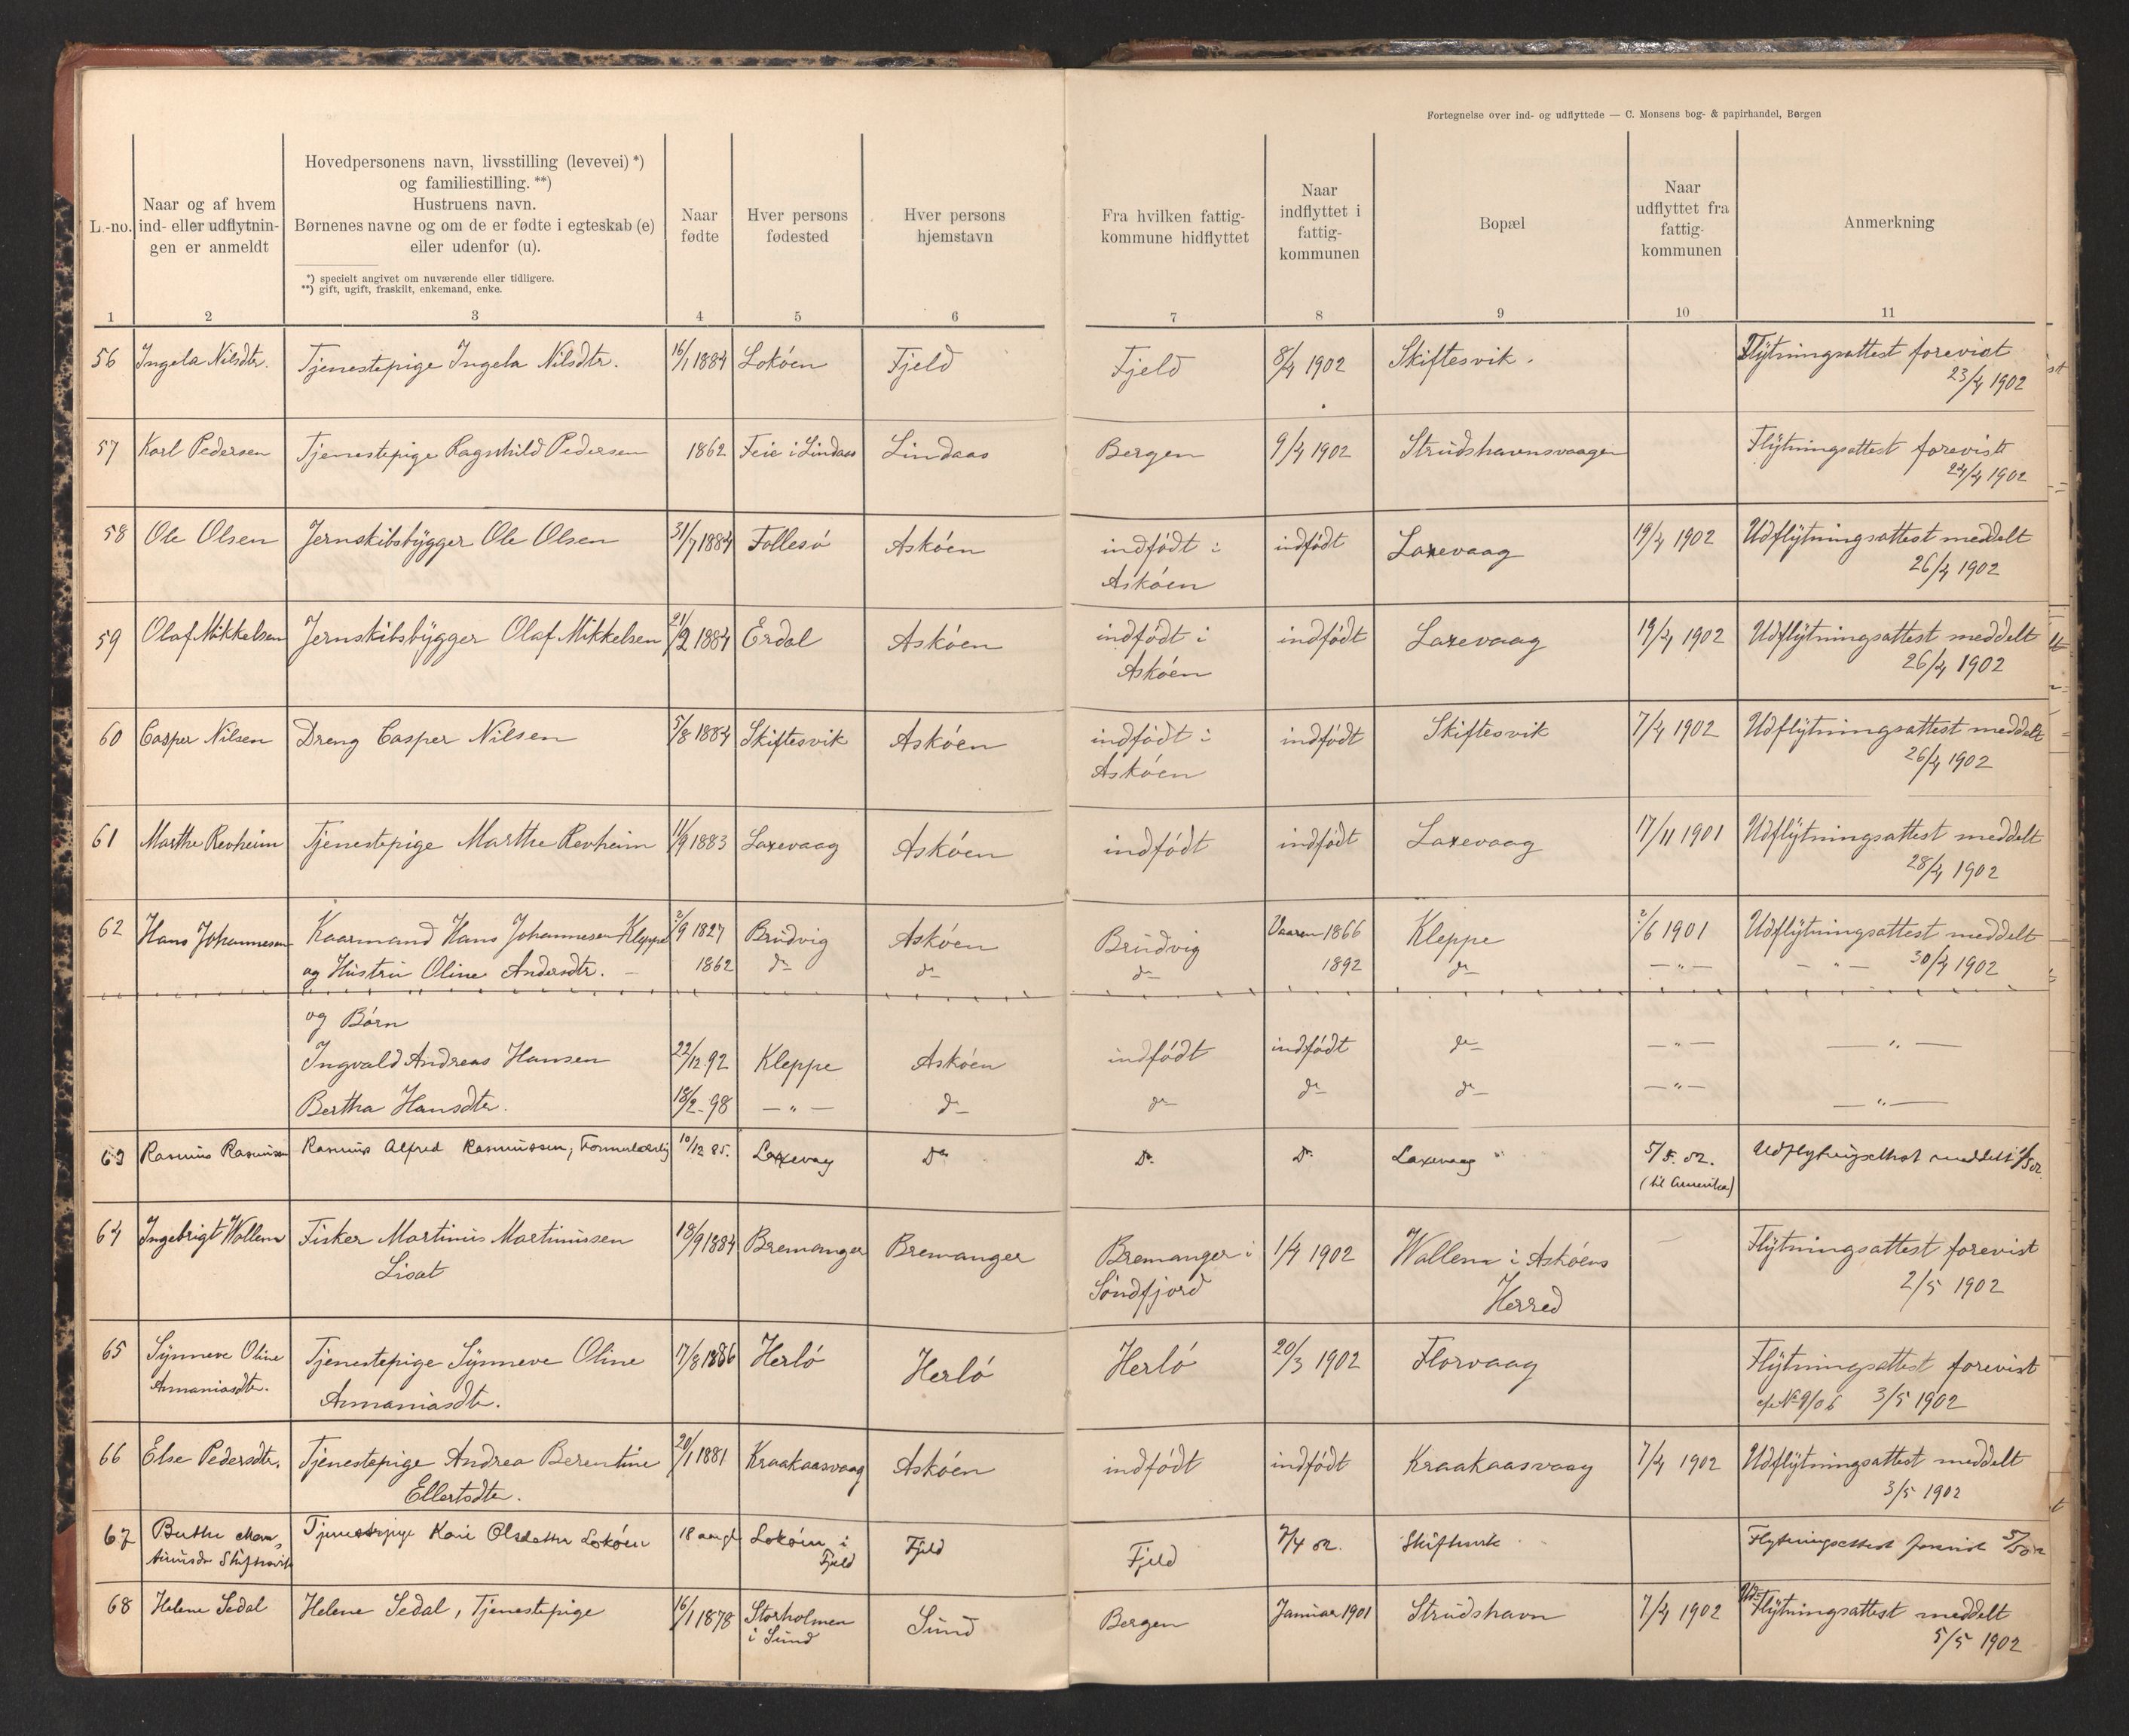 Fortegnelse over ind- og udflyttede — C. Monsens bog- & papirhandel, Bergen
L.-no.
Naar og af hvem
ind- eller udflytnin-
gen er anmeldt
Hovedpersonens navn, livsstilling (levevei) *)
og familiestilling. **)
Hustruens navn.
Børnenes navne og om de er fødte i egteskab (e)
eller udenfor (u).
*) specielt angivet om nuværende eller tidligere.
**) gift, ugift, fraskilt, enkemand, enke.
Naar
fødte
Hver persons
fødested
Hver persons
hjemstavn
Fra hvilken fattig-
kommune hidflyttet
Naar
indflyttet i
fattig-
kommunen
Bopæl
Naar
udflyttet fra
fattig-
kommunen
Anmerkning
1 2 3 4 5 6 7 8 9 10 11
56 Ingela Nilsdtr. Tjenestepige Ingela Nilsdtr. 16/1 1884 Lokóen Fjeld Fjeld 8/4 1902 Skiftesvik. Flytningsattest forevist
23/4 1902
57 Karl Pedersen Tjenestepige Ragnhild Pedersen 1862 Feie i Lindaas Lindaas Bergen 9/4 1902 Strudshavnsvaagen Flytningsattest forevist
24/4 1902
58 Ole Olsen Jernskibsbygger Ole Olsen 31/7 1884 Follesó Askóen indfódt i indfódt Laxevaag 19/4 1902 Udflytningsattest meddelt
Askóen 26/4 1902
59 Olaf Mikkelsen Jernskibsbygger Olaf Mikkelsen 21/2 1884 Erdal Askóen indfódt i indfódt Laxevaag 19/4 1902 Udflytningsattest meddelt
Askóen 26/4 1902
60 Casper Nilsen Dreng Casper Nilsen 5/8 1884 Skiftesvik Askóen indfódt i indfódt Skiftesvik 7/4 1902 Udflytningsattest meddelt
Askóen 26/4 1902
61 Marthe Revheim Tjenestepige Marthe Revheim 11/9 1883 Laxevaag Askóen indfódt indfódt Laxevaag 17/11 1901 Udflytningsattest meddelt
28/4 1902
62 Hans Johannesen Kaarmand Hans Johannesen Kleppe 2/9 1827 Brudvig Askóen Brudvig Vaaren 1866 Kleppe 2/6 1901 Udflytningsattest meddelt
og Hustru Oline Andersdtr. — 1862 do do do 1892 do —"— —"— 30/4 1902
og Bórn
Ingvald Andreas Hansen 22/12 92 Kleppe Askóen indfódt indfódt do —"— —"—
Bertha Hansdtr. 18/2 98 —"— do do do do —"— —"—
63 Rasmus Rasmussen Rasmus Alfred Rasmussen, 10/12 85. Laxevaag Do Do Do Laxevaag " 5/5. 02. Udflytningsattest meddelt
(til Amerika)
64 Ingebrigt Wallem Fisker Martinus Martinussen 18/9 1884 Bremanger Bremanger Bremanger i 1/4 1902 Wallem i Askóens Flytningsattest forevist
Lisat Sóndfjord Herred 2/5 1902
65 Synneve Oline Tjenestepige Synneve Oline 17/8 1886 Herló Herló Herló 20/3 1902 Florvaag Flytningsattest forevist
Annaniasdtr. Annaniasdtr. cfr No 9/06 3/5 1902
66 Else Pedersdtr. Tjenestepige Andrea Berentine 20/1 1881 Kraakaasvaag Askóen indfódt indfódt Kraakaasvaag 7/4 1902 Udflytningsattest meddelt
Ellertsdtr. 3/5 1902
67 Tjenestepige Kari Olsdatter Lokóen 18 aar gl Lokóen i Fjeld Fjeld 7/4 02. Skiftesvik Flytningsattest forevist
Fjeld
68 Helene Sedal Helene Sedal, Tjenestepige 16/1 1878 Storholmen Sund Bergen Januar 1901 Strudshavn 7/4 1902 Ud-Flytningsattest meddelt
i Sund 5/5 1902